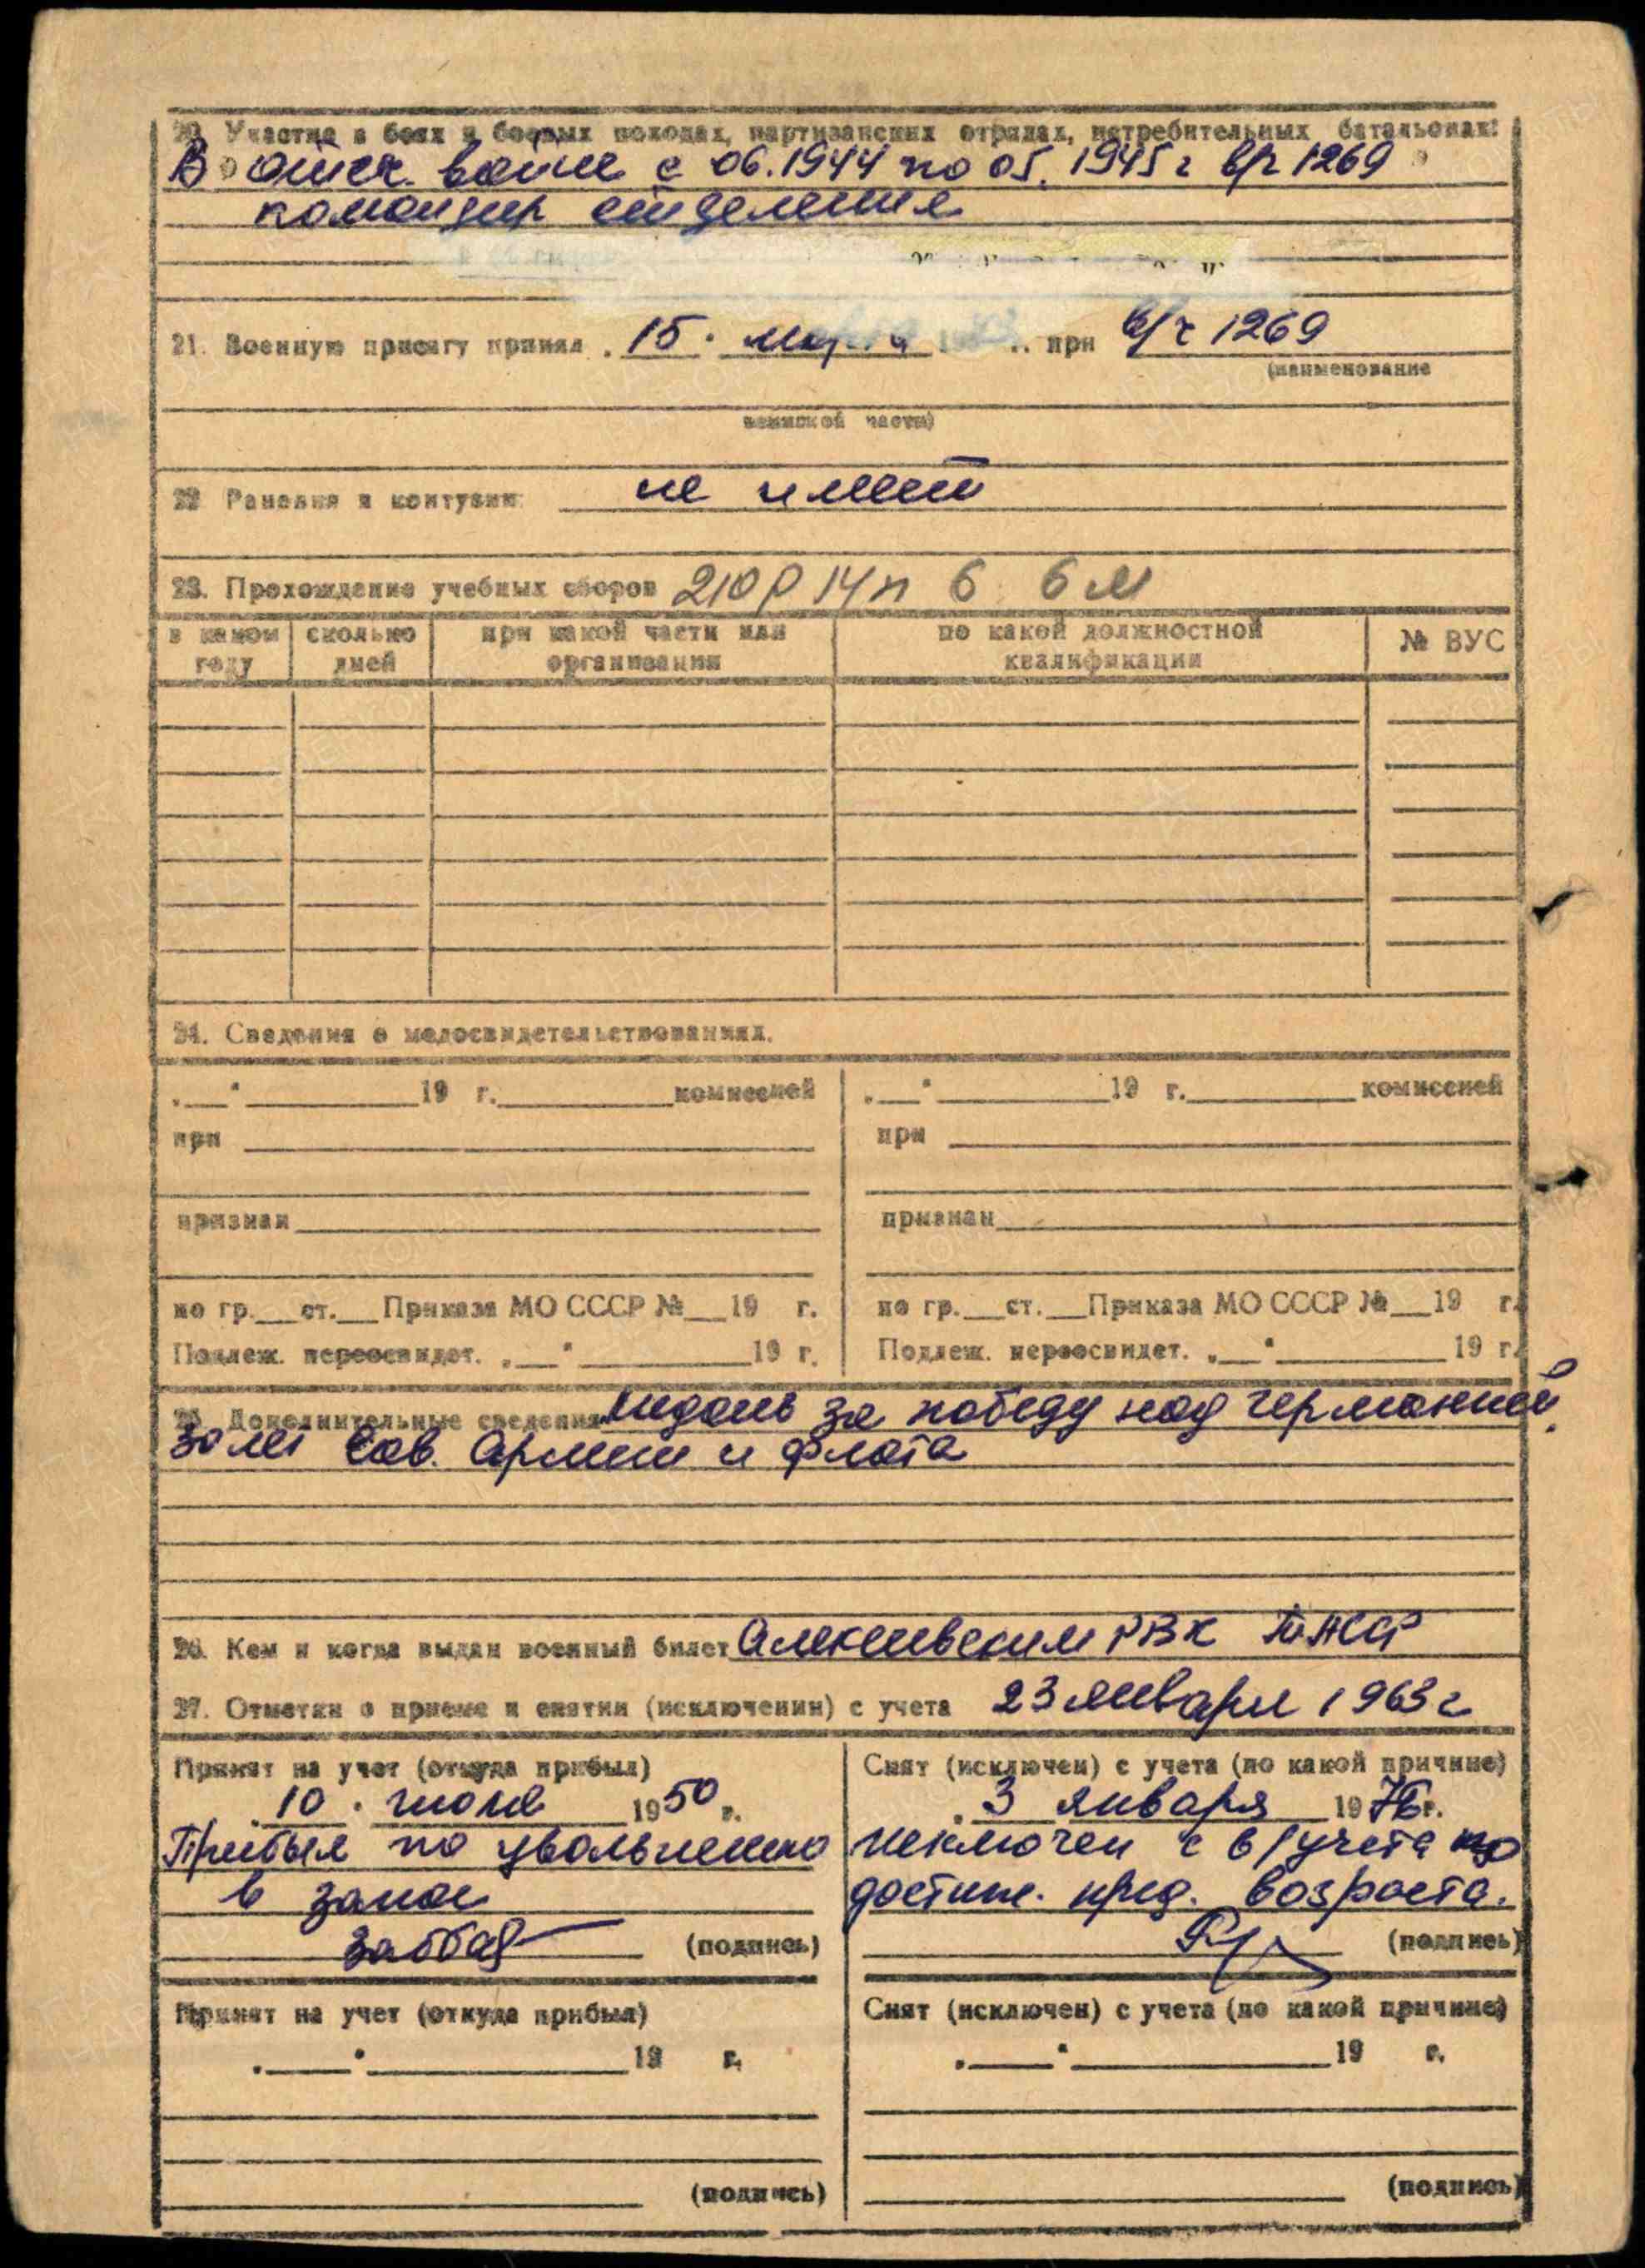 20. Участие в боях и боевых походах, партизанских отрядах, истребительных батальонах:
В отеч. войне с 06.1944 по 05.1945 г в/ч 1269
командир отделения
21. Военную присягу принял 15. марта при в/ч 1269
(наименование
воинской части)
22 Ранения и контузии: не имеет
23. Прохождение учебных сборов 210 р 14 п б 6 м
в каком году | сколько дней | при какой части или организации | по какой должностной квалификации | № ВУС
24. Сведения о медосвидетельствованиях.
„___“ ________ 19 г. ________ комиссией | „___“ ________ 19 г. ________ комиссией
при | при
признан | признан
по гр.___ст.___Приказа МО СССР №___19 г. | по гр.___ст.___Приказа МО СССР №___19 г.
Подлеж. переосвидет. „___“ ________ 19 г. | Подлеж. переосвидет. „___“ ________ 19 г.
25. Дополнительные сведения медаль за победу над германией,
30 лет Сов. Армии и флота
26. Кем и когда выдан военный билет Алексеевским РВК ТАССР
27. Отметки о приеме и снятии (исключении) с учета 23 января 1963 г
Принят на учет (откуда прибыл) | Снят (исключен) с учета (по какой причине)
10. июля 1950 г. | 3 января 1976 г.
Прибыл по увольнению | исключен с в/учета по
в запас | достиж. пред. возраста.
(подпись) | (подпись)
Принят на учет (откуда прибыл) | Снят (исключен) с учета (по какой причине)
„___“ ________ 19 г. | „___“ ________ 19 г.
(подпись) | (подпись)